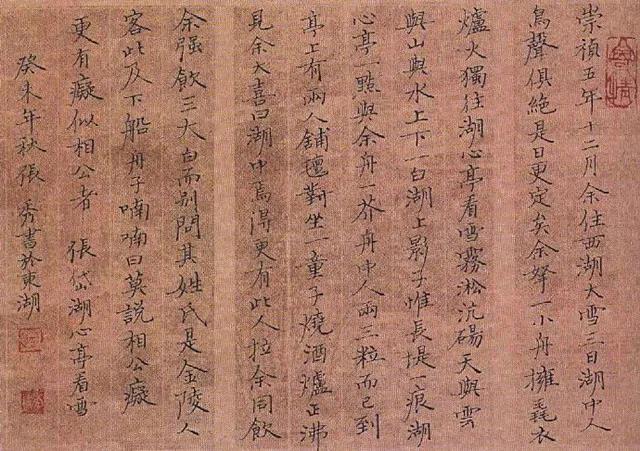 崇禎五年十二月余住西湖大雪三日湖中人
鳥聲俱絕是日更定矣余拏一小舟擁毳衣
爐火獨往湖心亭看雪霧淞沆碭天與雲
與山與水上下一白湖上影子惟長堤一痕湖
心亭一點與余舟一芥舟中人兩三粒而已到
亭上有兩人鋪氊對坐一童子燒酒爐正沸
見余大喜曰湖中焉得更有此人拉余同飲
余强飲三大白而別問其姓氏是金陵人
客此及下船舟子喃喃曰莫說相公癡
更有癡似相公者 張岱湖心亭看雪
癸未年秋張秀書於東湖